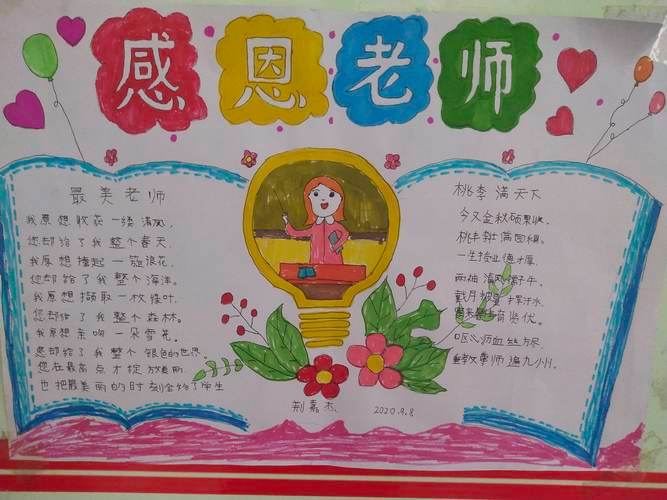 感恩老师
最美老师
我原想收获一缕清风,
您却给了我整个春天.
我原想捧起一簇浪花.
您却给了我整个海洋.
我原想撷取一枚绿叶.
您却给了我整个森林.
我原想亲吻一朵雪花.
您却给了我整个银色的世界.
您在最高点才绽放美丽
也把最美丽的时刻给了学生
桃李满天下
今又金秋硕果收.
桃李满园
一生
两袖清风
戴月披星挥汗水.
有贤优.
呕心沥血
师遍九小州.
荆嘉杰
2020.9.8